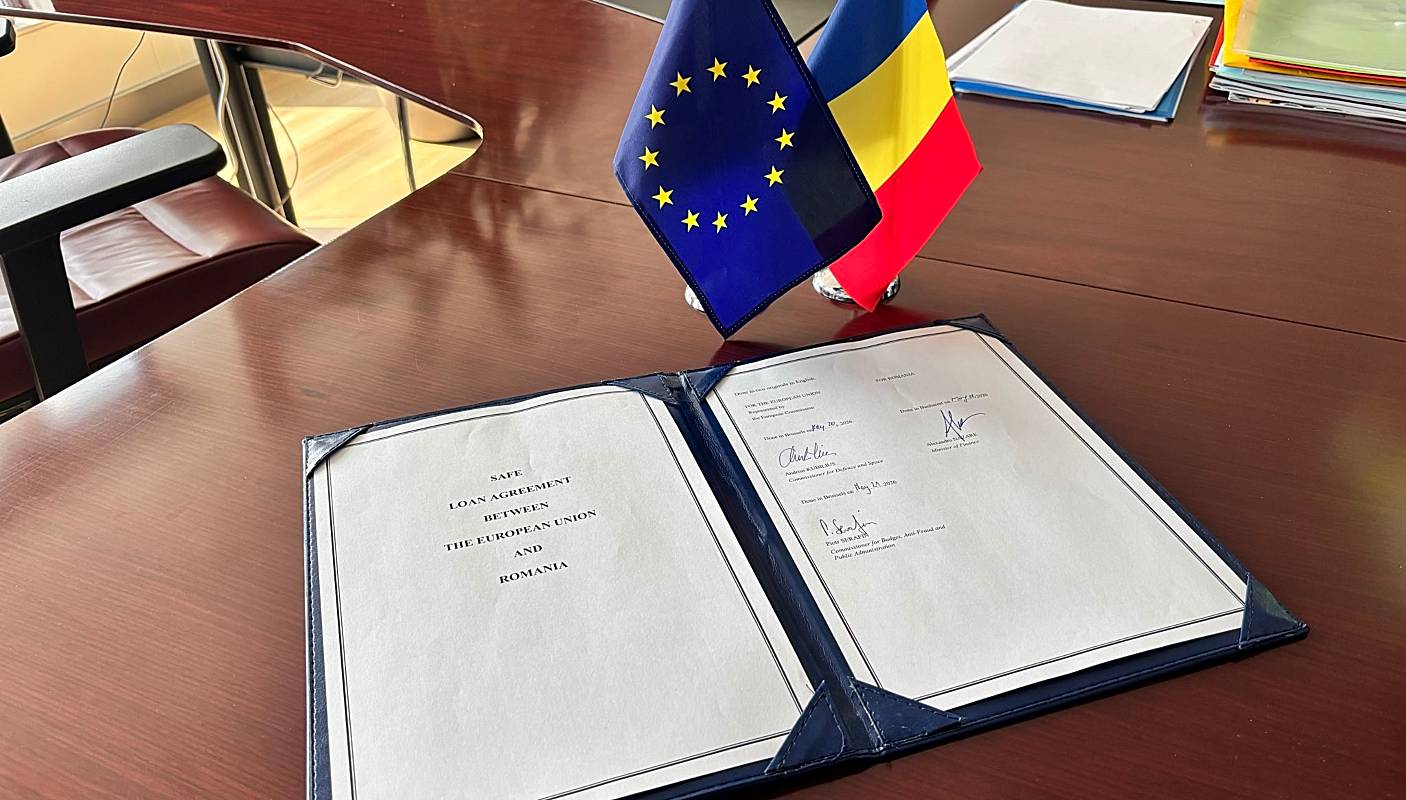 SAFE
LOAN AGREEMENT
BETWEEN
THE EUROPEAN UNION
AND
ROMANIA
Done in two originals in English
FOR THE EUROPEAN UNION
Represented by
the European Commission
Done in Brussels on May 20, 2026
Andrius KUBILIUS
Commissioner for Defence and Space
Done in Brussels on May 21, 2026
P. Serafin
Piotr SERAFIN
Commissioner for Budget, Anti-Fraud and
Public Administration
FOR ROMANIA
Done in Bucharest on 2026
Alexandru
Minister of Finance